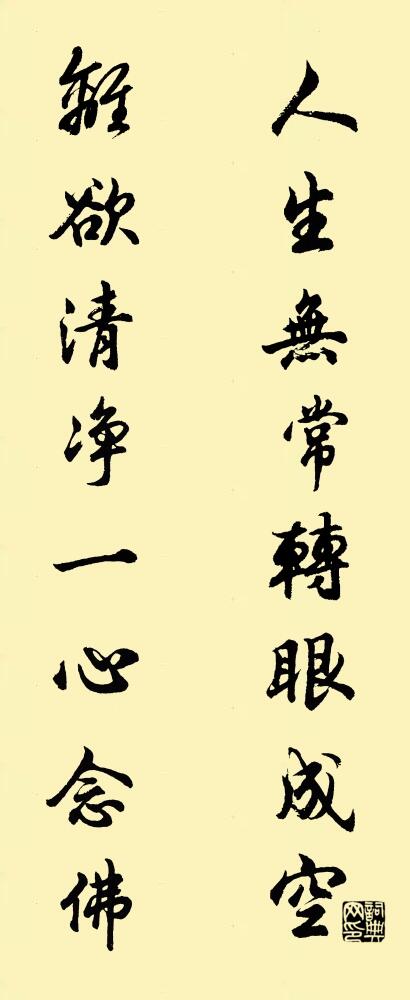 人生無常轉眼成空
離欲清净一心念佛
詞典网印